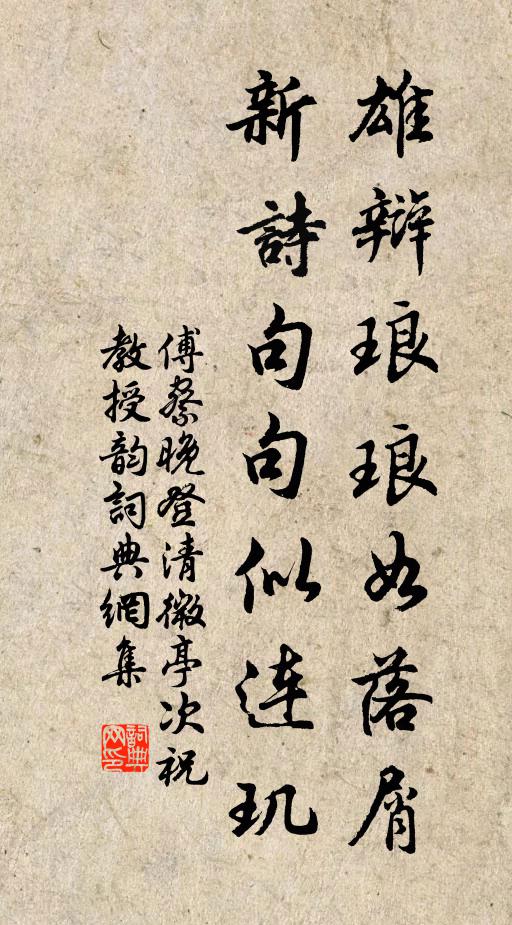 雄辩琅琅如落屑
新詩句句似连玑
傅察晚登清徽亭次祝
教授韵詞典網集
詞典网印